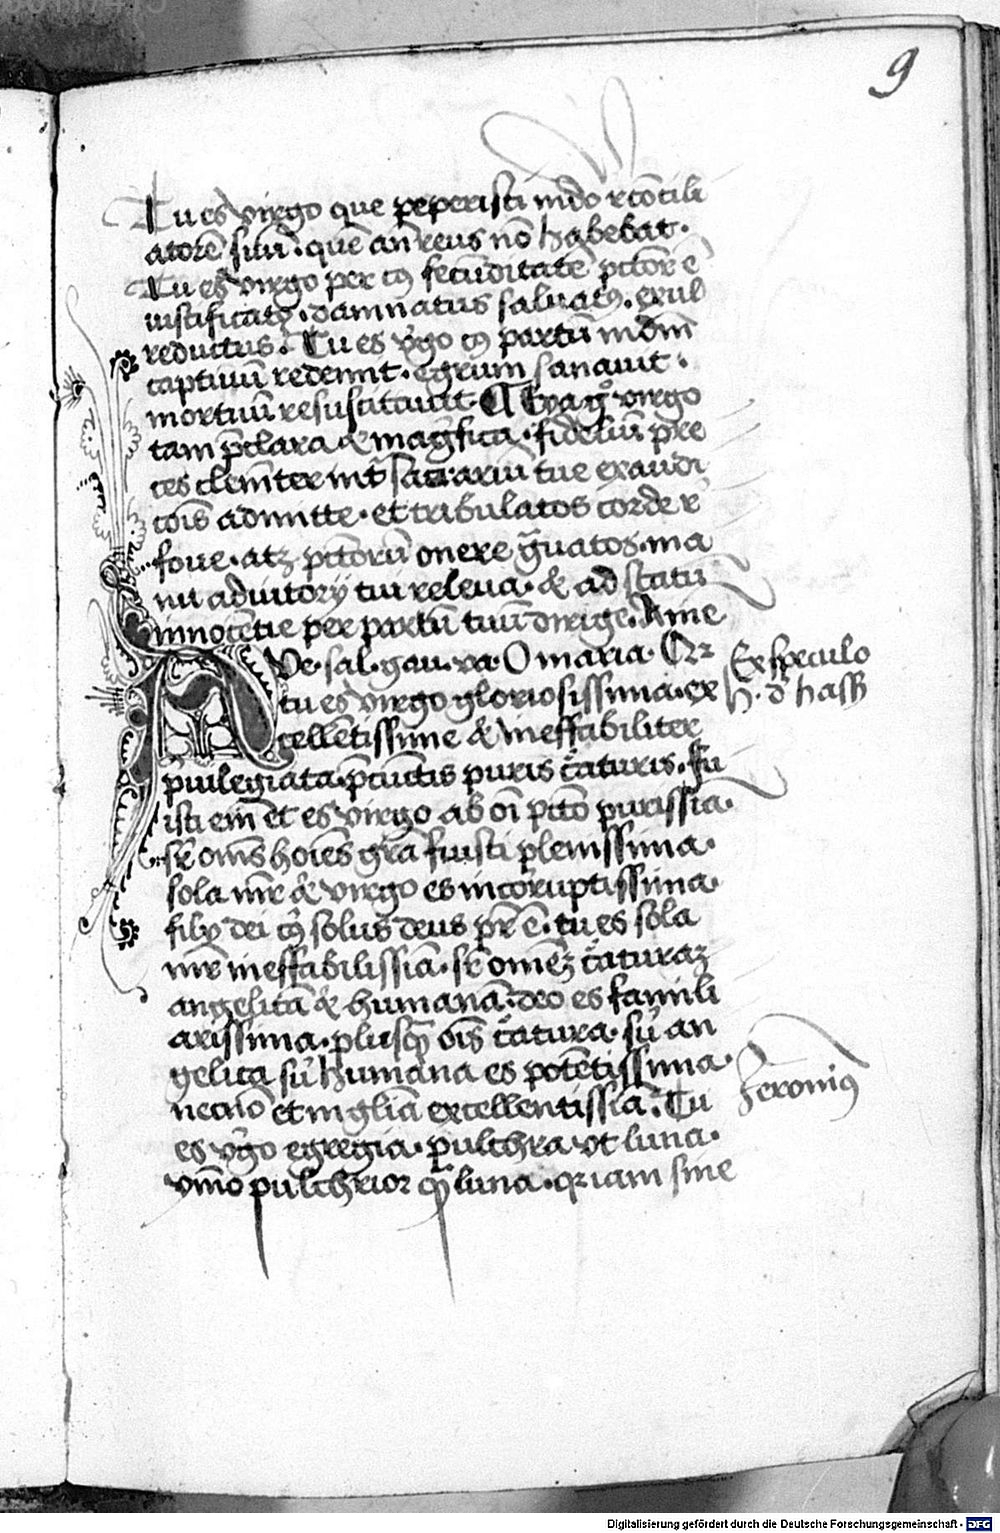 9
Tu es virgo que peperisti mūdo rcōcili
atorē suū · quē an reus nō habebat ·
Tu es virgo per cuꝰ fecūditatē pctor ē
iustificatꝰ · damnatus saluatꝰ · exul
reductus · Tu es vgo cꝰ partū mdm̄
captiuū redemit · egrum sanauit ·
mortuū resuscitauit · ¶ Eya gͦ virgo
tam p̄clara & mag̃fica · fideliū pre
ces clemēter int̄ sacrariū tue exaudi
cōis admitte · et tribulatos corde r
foue · atqꝫ pctorū onere g̃uatos · ma
nu adiutorÿ tui releua · & ad statū
innocētie per partū tuū dirige · Amē
AVe · sal · gau · va · O maria · Qꝛ
tu es virgo gloriosissima · ex
cellētissime & ineffabiliter
p̄uilegiata · p̄cūctis puris c̃aturis · Fu
isti em̄ et es virgo ab oī pctō purissīa ·
sr̄ om̄s hoīes gr̄a fuisti plenissima ·
sola mr̄ & virgo es incoruptissima ·
filÿ dei cꝰ solus deus pr̄ ē · tu es sola
mr̄ ineffabilissīa · sr̄ omēꝫ c̃aturaꝫ
angelicā & humanā · deo es famili
arissima · plusq̃ ois c̃atura · sū an
gelica sū humana es potētissima ·
necnō et in gl̄ia excellentissīa · Tu
es vgo egregia · pulchra vt luna ·
ymmo pulchrior q̃ luna · qꝛ iam sine
Ex speculo
h · d hassꝭ
Ieronimꝰ
Digitalisierung gefördert durch die Deutsche Forschungsgemeinschaft - DFG